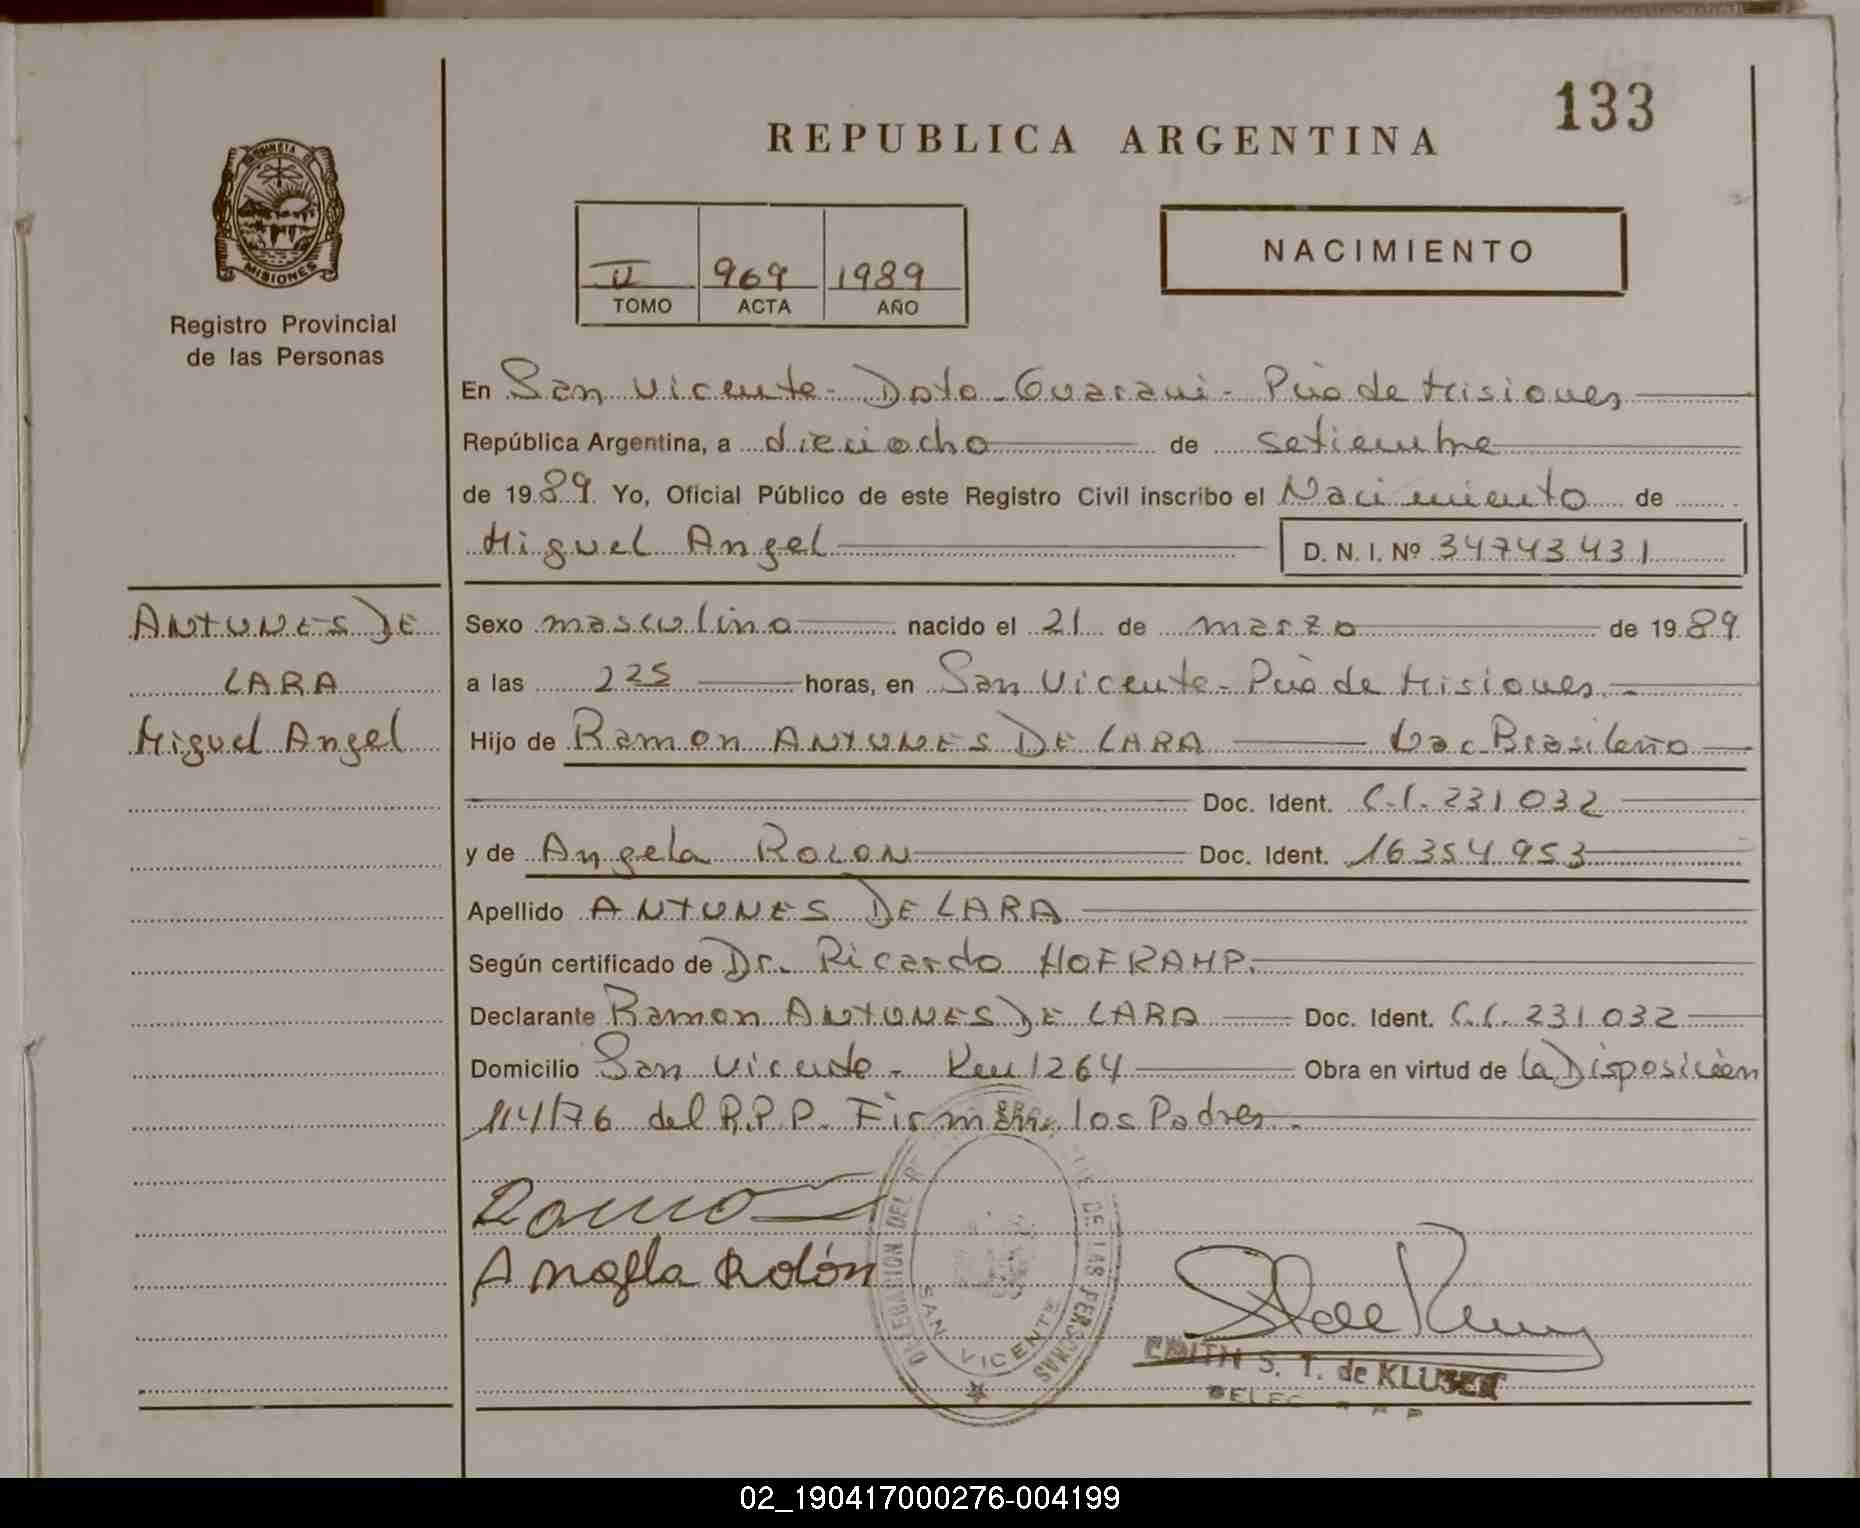 133
REPUBLICA ARGENTINA
PROVINCIA DE
MISIONES
Registro Provincial
de las Personas
II 969 1989
TOMO ACTA AÑO
NACIMIENTO
En San Vicente - Dpto. Guarani - Pcia de Misiones
República Argentina, a dieciocho de setiembre
de 1989. Yo, Oficial Público de este Registro Civil inscribo el Nacimiento de
Miguel Angel D. N. I. Nº 34743431
ANTUNES DE
LARA
Miguel Angel
Sexo masculino nacido el 21 de marzo de 1989
a las 225 horas, en San Vicente - Pcia de Misiones.
Hijo de Ramon ANTUNES DE LARA Nac Brasileño
Doc. Ident. C.I. 231032
y de Angela ROLON Doc. Ident. 16354953
Apellido ANTUNES DE LARA
Según certificado de Dr. Ricardo HOFRAMP.
Declarante Ramon ANTUNES DE LARA Doc. Ident. C.I. 231032
Domicilio San Vicente - Km 1264 Obra en virtud de la Disposicion
114/76 del R.P.P. Firman los Padres.
Ramo
Angela Rolón
DELEGACION DEL DE LAS PERSONAS
SAN VICENTE
EDITH S. T. de KLUSEN
02_190417000276-004199